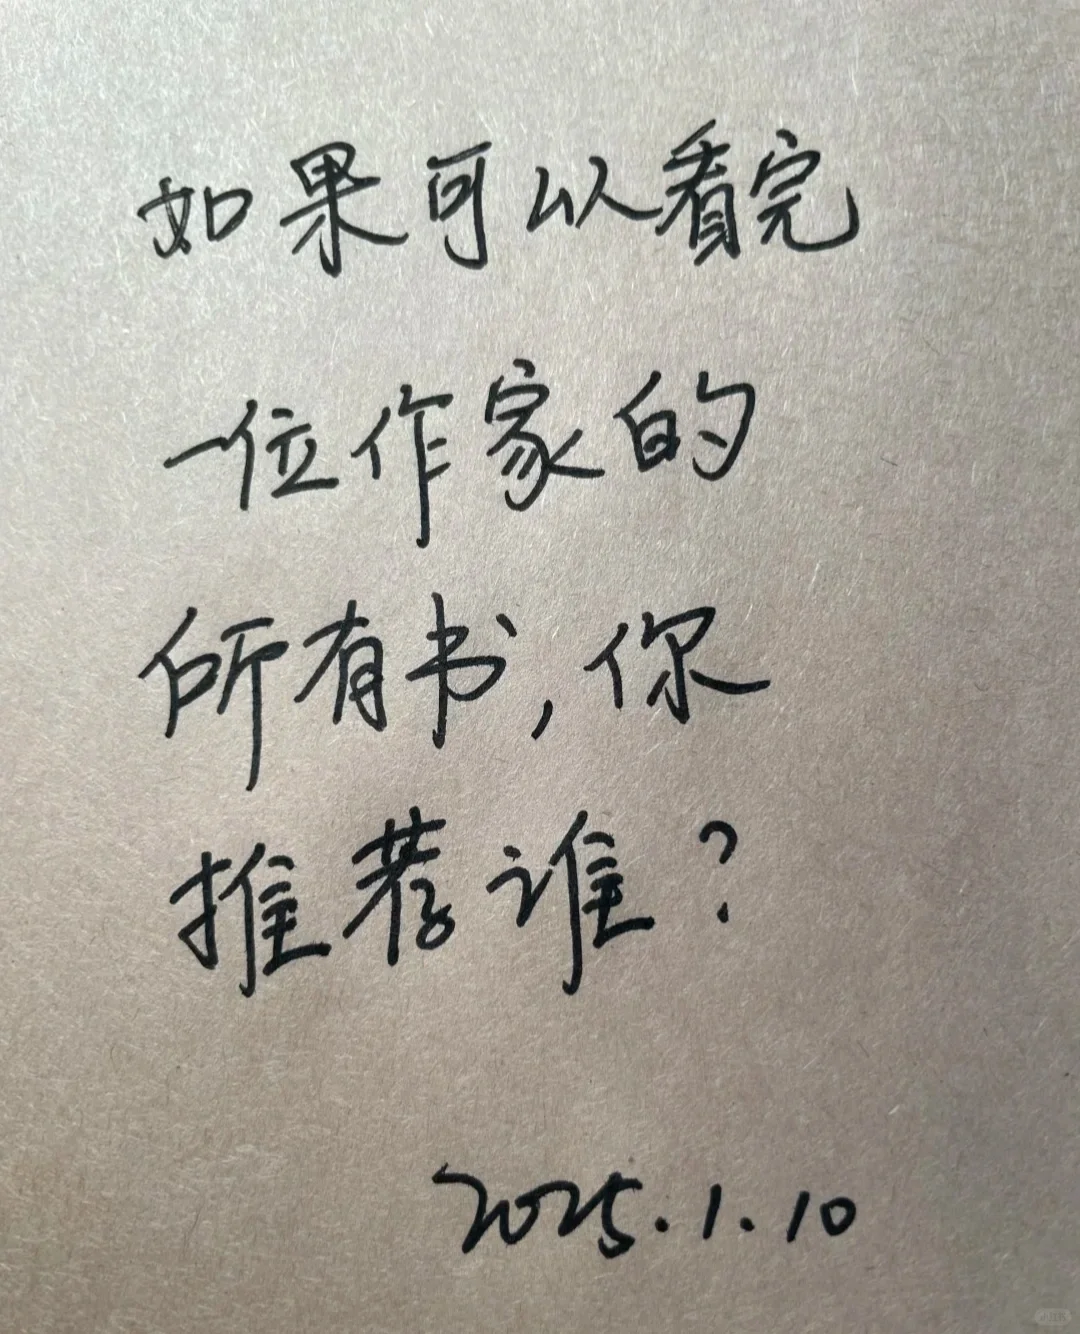 如果可以看完
一位作家的
所有书,你
推荐谁?
2025.1.10